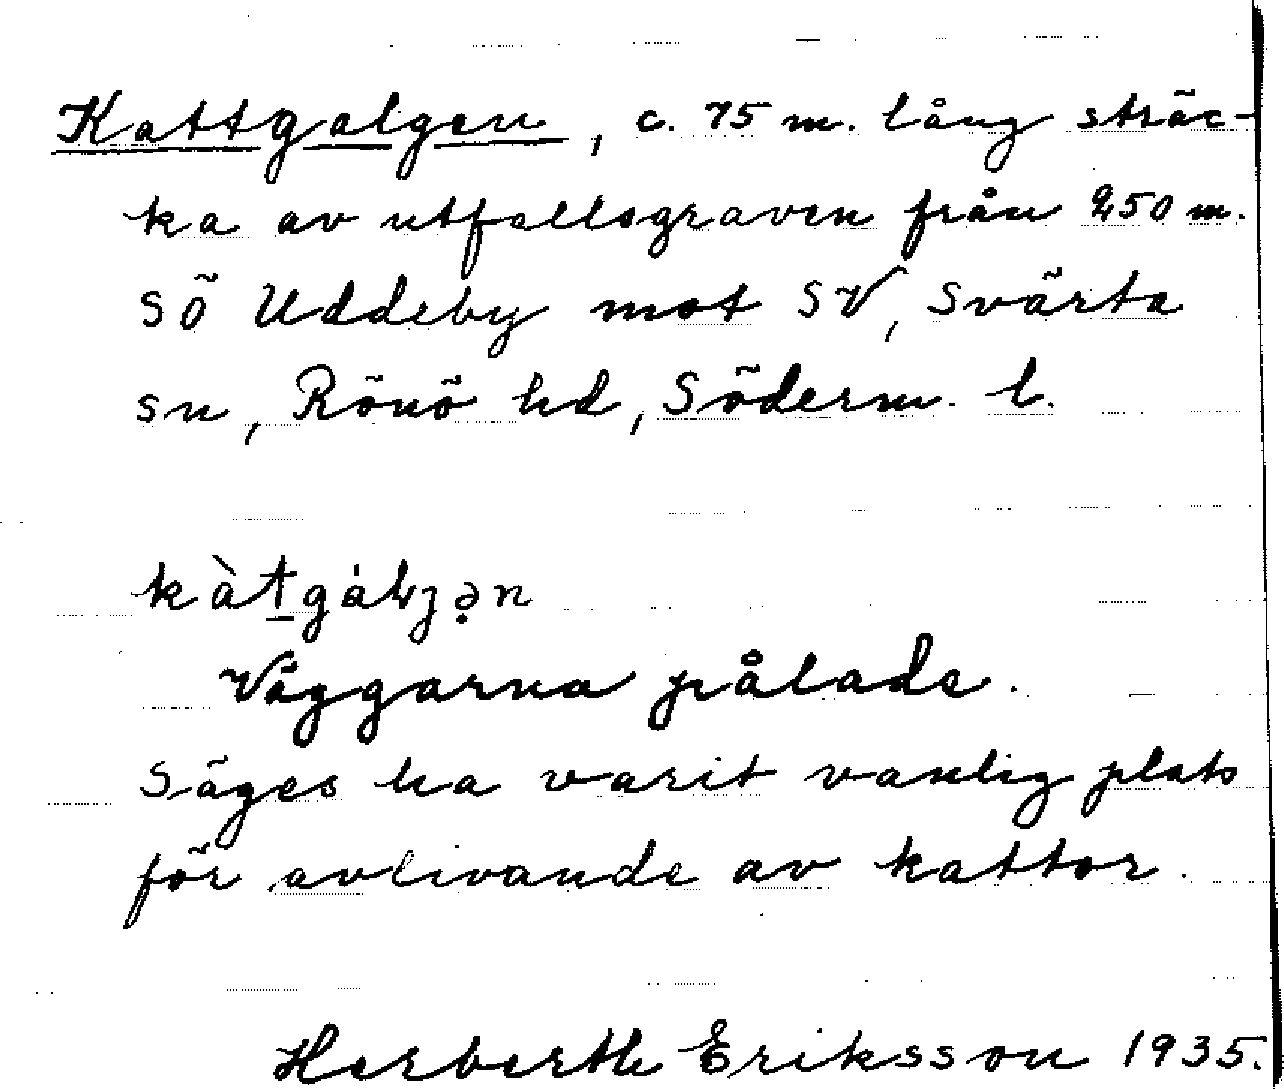 Kattgalgen, c. 75 m. lång sträc-
ka av utfallsgraven från 250 m.
SÖ Uddeby mot SV, Svärta
sn, Rönö hd, Söderm. l.
kàtgáljən
Väggarna pålade.
Säges ha varit vanlig plats
för avlivande av kattor.
Herberth Eriksson 1935.